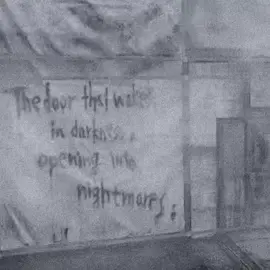 The door that wakes
in darkness,
opening into
nightmares.